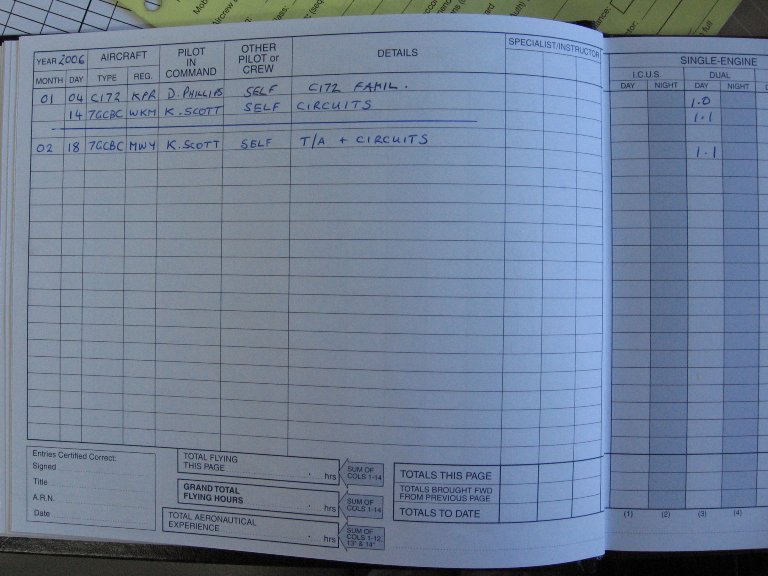 YEAR 2006 AIRCRAFT PILOT IN COMMAND OTHER PILOT or CREW DETAILS SPECIALIST/INSTRUCTOR SINGLE-ENGINE
I.C.U.S. DUAL
MONTH DAY TYPE REG. DAY NIGHT DAY NIGHT
01 04 C172 KPR D. PHILLIPS SELF C172 FAMIL. 1.0
14 7GCBC WKM K. SCOTT SELF CIRCUITS 1.1
02 18 7GCBC MWY K. SCOTT SELF T/A + CIRCUITS 1.1
Entries Certified Correct:
Signed
Title
A.R.N.
Date
TOTAL FLYING
THIS PAGE hrs
SUM OF
COLS 1-14
GRAND TOTAL
FLYING HOURS hrs
SUM OF
COLS 1-14
TOTAL AERONAUTICAL
EXPERIENCE hrs
SUM OF
COLS 1-12,
13* & 14*
TOTALS THIS PAGE
TOTALS BROUGHT FWD
FROM PREVIOUS PAGE
TOTALS TO DATE
(1) (2) (3) (4)